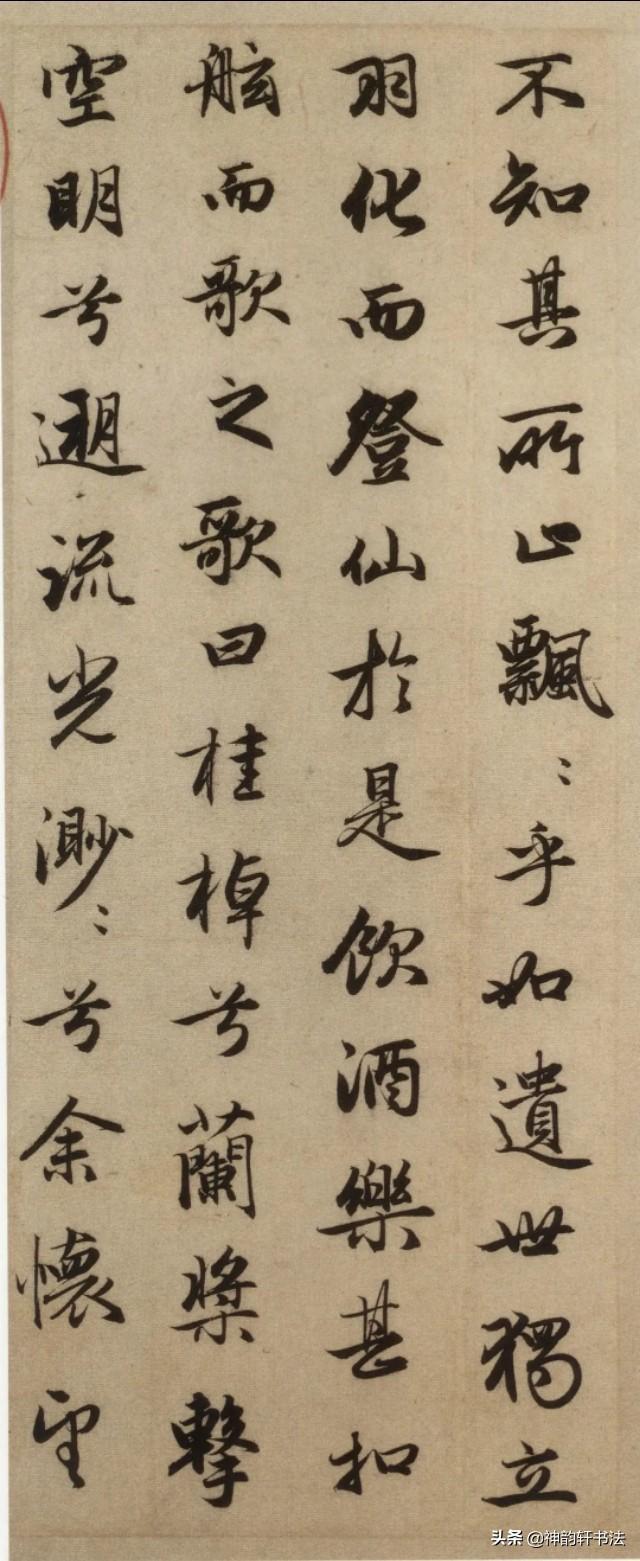 不知其所止飄〻乎如遺世獨立
羽化而登仙於是飲酒樂甚扣
舷而歌之歌曰桂棹兮蘭槳擊
空明兮遡流光渺〻兮余懷望
头条 @神韵轩书法